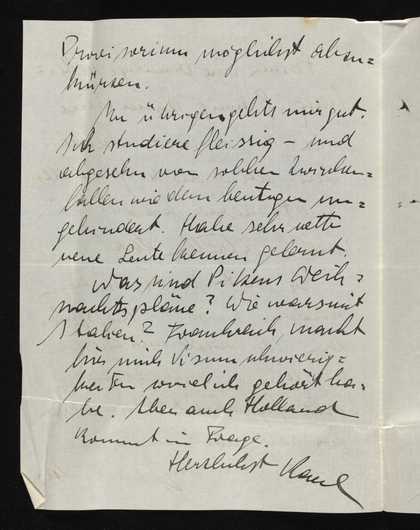 Provisorium möglichst abzu-
kürzen.
Im übrigen gehts mir gut.
Ich studiere fleissig – und
abgesehn von solchen Zwischen-
fällen wie dem heutigen un-
gehindert. Habe sehr nette
neue Leute kennen gelernt.
Was sind Weih-
nachtspläne? Wie wärs mit
Italien? Frankreich macht
für mich Visumschwierig-
keiten soviel ich gehört ha-
be. Aber auch Holland
kommt in Frage.
Herzlichst